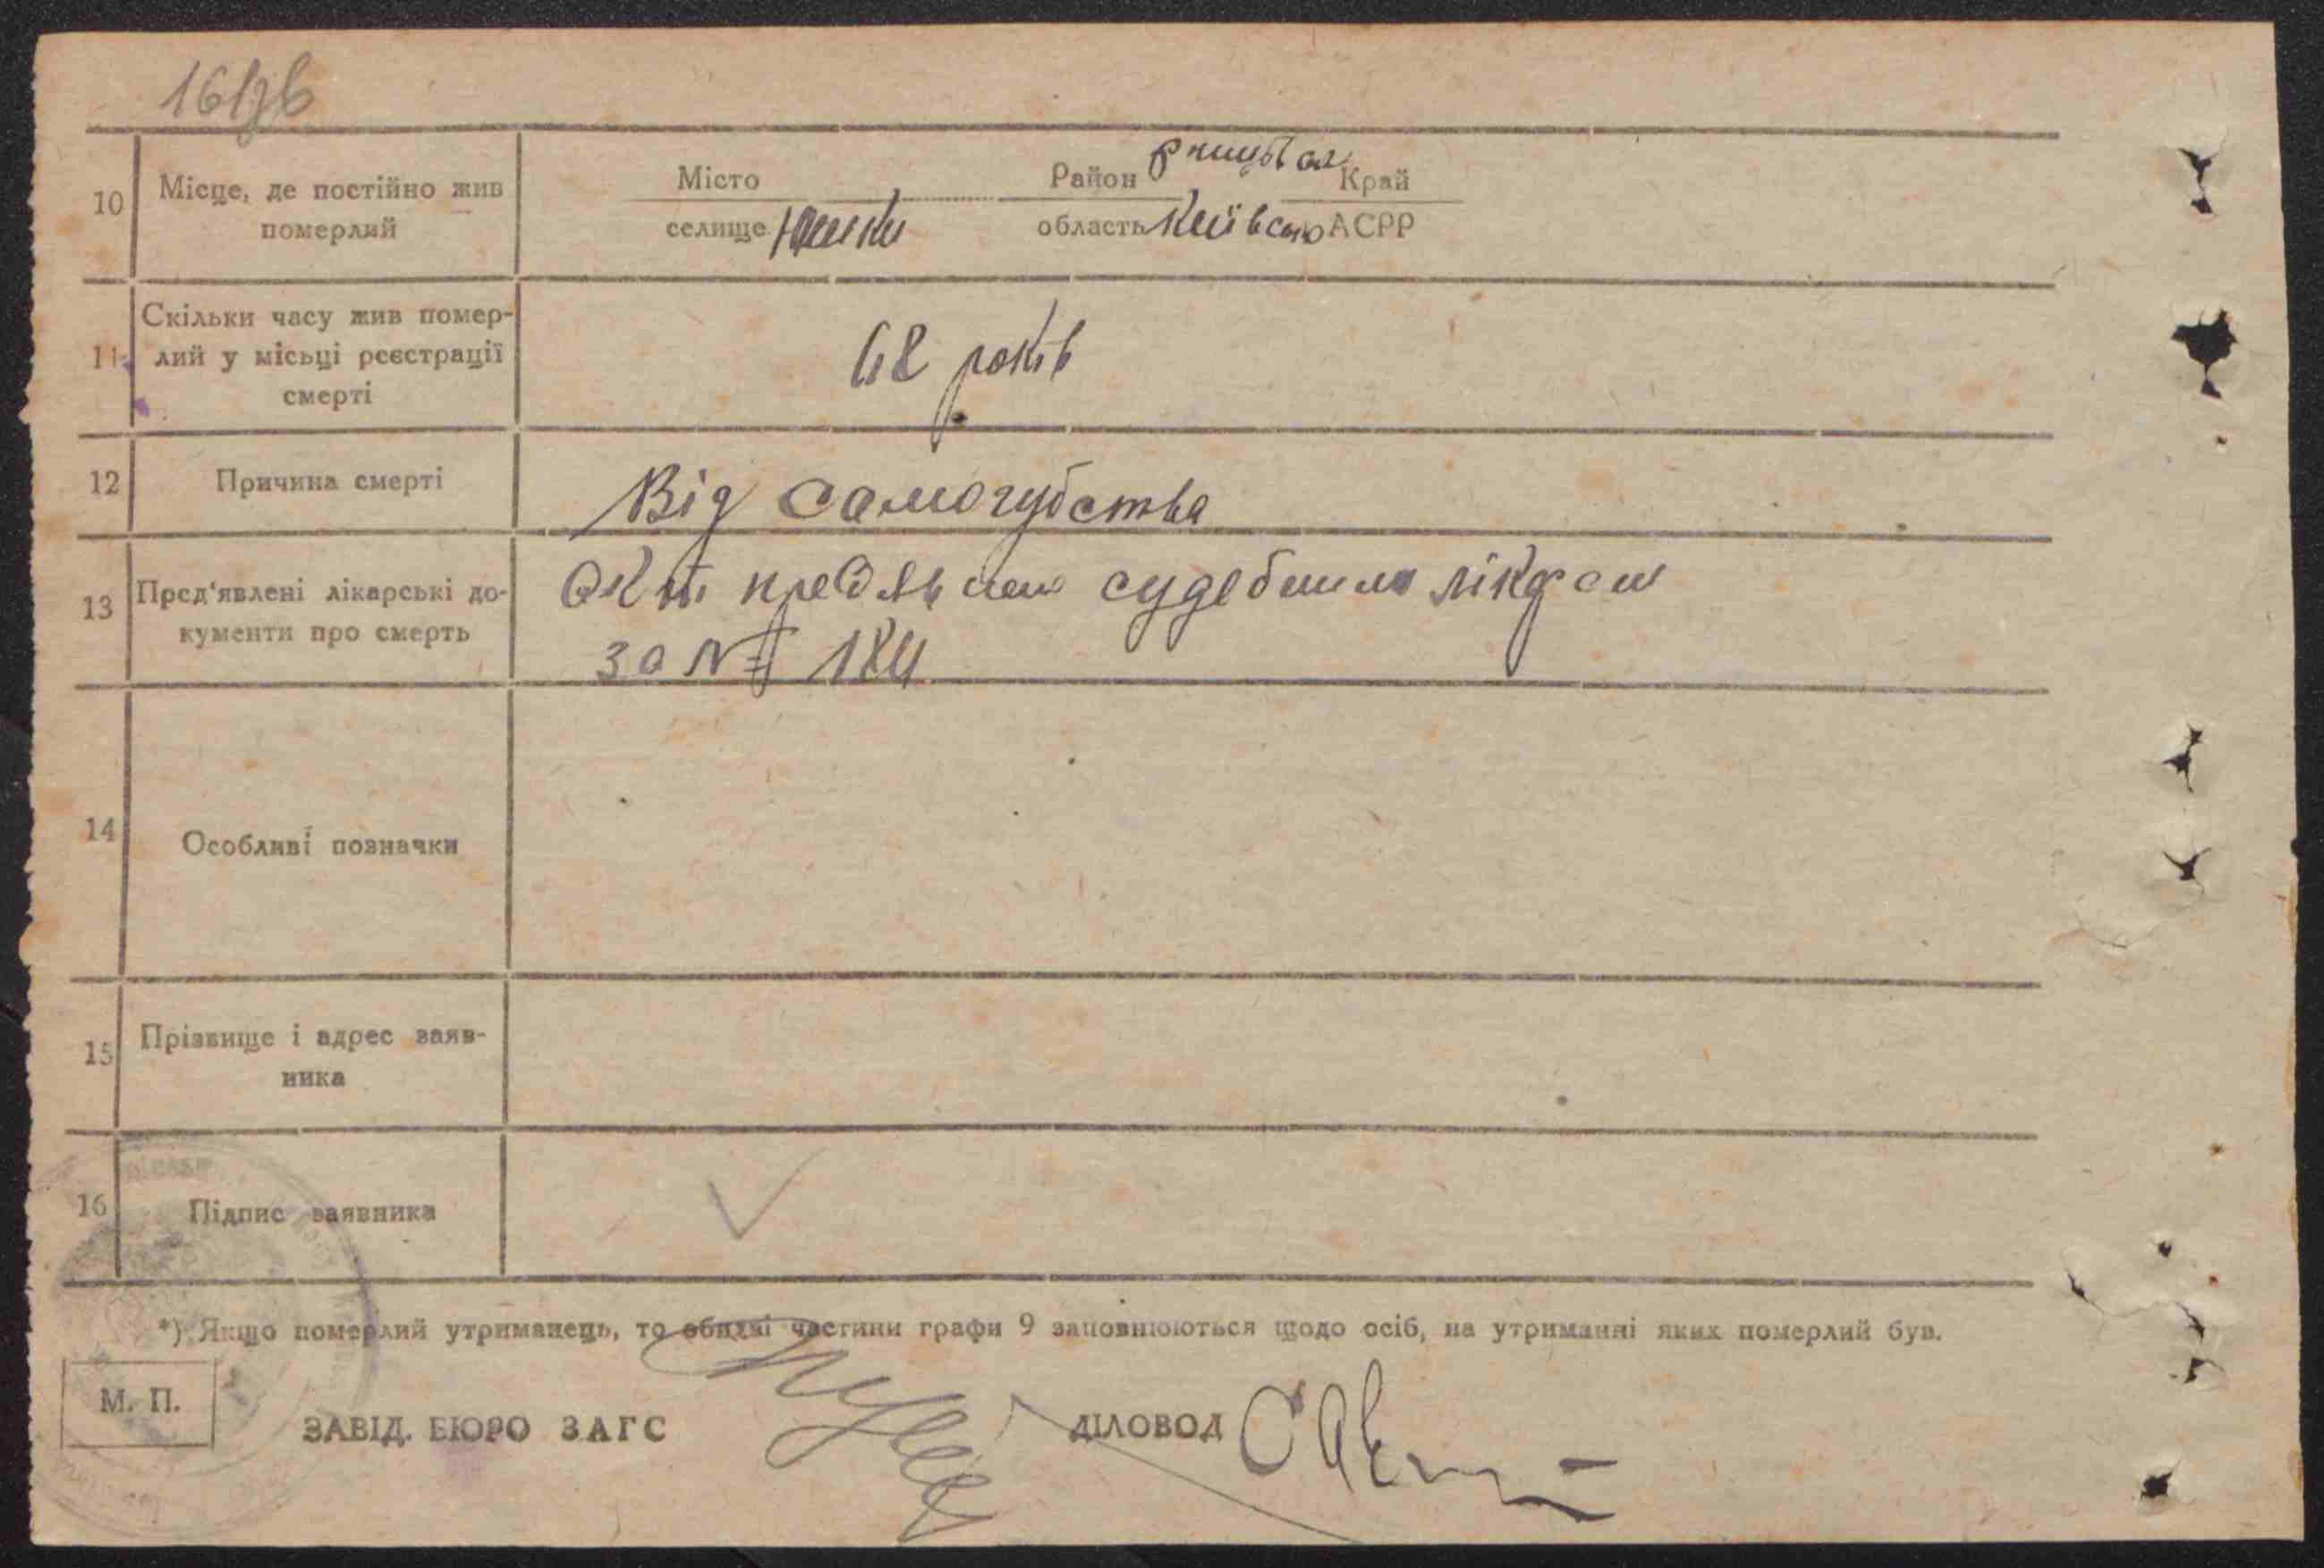 10
Місце, де постійно жив
померлий
Місто
Район
Край
селище Юшки
область Київсою АСРР
11
Скільки часу жив помер-
лий у місьці реєстрації
смерті
68 років
12
Причина смерті
Від самогубства
13
Пред'явлені лікарські до-
кументи про смерть
судебним
за № 184
14
Особливі позначки
15
Прізвище і адрес заяв-
ника
16
Підпис заявника
*) Якщо померлий утриманець, то обидві частини графи 9 заповнюються щодо осіб, на утриманні яких померлий був.
М. П.
ЗАВІД. БЮРО ЗАГС
ДІЛОВОД